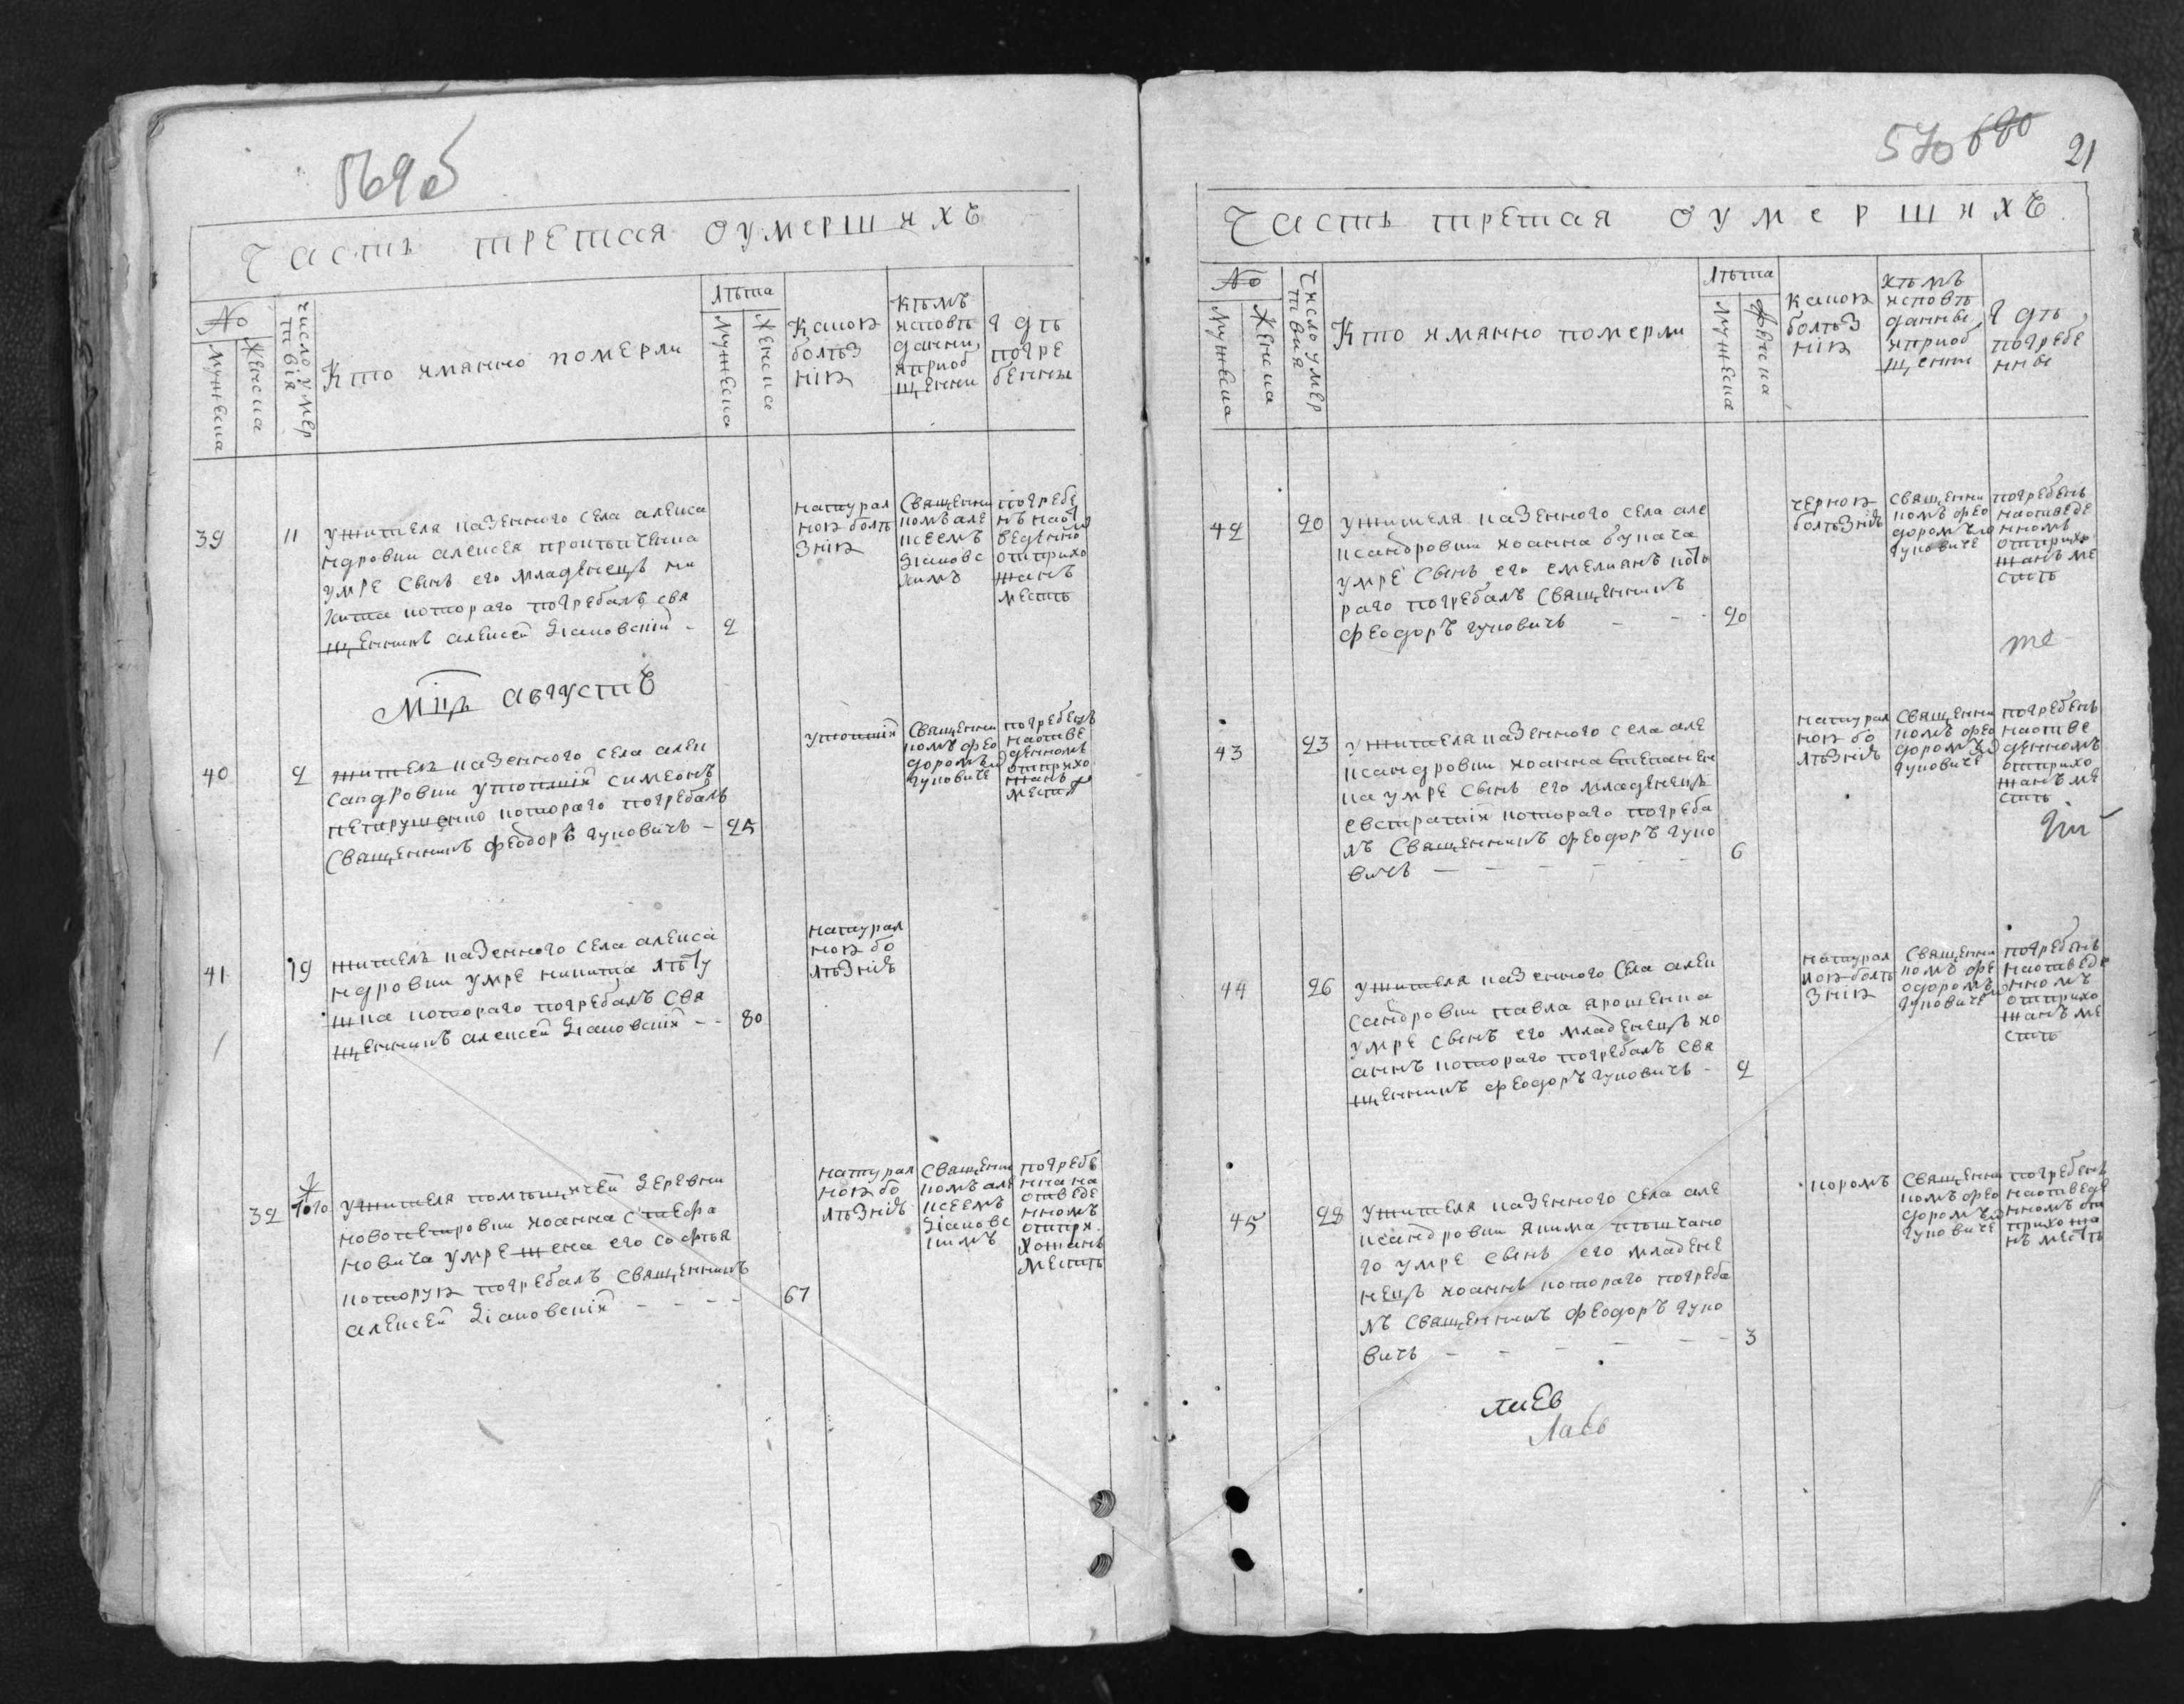 569 об
Часть третая оумершихъ
No
мужеска
женска
число умертвія
Кто имянно померли
лѣта
мужеска
женска
Какою
болѣз
нію
Кѣмъ
исповѣ
данни,
и приоб
щенни
Гдѣ
погре
бенны
39
11
У жителя казенного села алекса
ндровки алексея
умре сынъ его младенецъ ни
кита котораго погребалъ свя
щенникъ алексей Яановскій -
2
натурал
ною болѣ
знію
Священни
комъ але
ксеемъ
Яановс
кимъ
погребе
нъ на от
веденно
от прихо
жанъ
месть
Мцъ августъ
40
2
житель казенного села алек
сандровки утопшій симеонъ
котораго погребалъ
Священникъ феодоръ гуковичъ -
25
утопшій
Священни
комъ фео
доромъ
гуковиче
погребенъ
на отве
денномъ
от прихо
жанъ
местѣ
41
19
житель казенного села алекса
ндровки умре никита
котораго погребалъ свя
щенникъ алексей Яановскій - -
80
натурал
ною бо
лѣзнію
32
того
У жителя помѣщичей деревни
новопетровки иоанна стефа
новича умре жена его софья
которую погребалъ священникъ
алексей Яановскій - - - -
67
натурал
ною бо
лѣзнію
Священни
комъ але
ксеемъ
Яановс
кимъ
погребе
нна на
отведе
нномъ
от при
хожанъ
месть
570 680
21
Часть третая оумершихъ
No
мужеска
женска
число умертвия
Кто имянно померли
лѣта
мужеска
женска
Какою
болѣз
нію
Кѣмъ
исповѣ
данны,
и приоб
щенни
Гдѣ
погребе
нны
42
20
У жителя казенного села але
ксандровки иоанна букача
умре сынъ его емелианъ кото
раго погребалъ священникъ
феодоръ гуковичъ - - -
20
черною
болѣзнію
священни
комъ фео
доромъ
гуковиче
погребенъ
на отведе
нномъ
от прихо
жанъ ме
стѣ
43
23
У жителя казенного села але
ксандровки иоанна степанен
ка умре сынъ его младенецъ
евстратій котораго погреба
лъ Священникъ феодоръ гуко
вичъ - - - - -
6
натурал
ною бо
лѣзнію
Священни
комъ фео
доромъ
гуковиче
погребенъ
на отве
денномъ
от прихо
жанъ ме
стѣ
44
26
У жителя казенного села алек
сандровки павла ярошенка
умре сынъ его младенецъ ио
аннъ котораго погребалъ свя
щенникъ феодоръ гуковичъ -
2
натурал
ною болѣ
знію
Священни
комъ фе
одоромъ
гуковиче
погребенъ
на отведе
нномъ
от прихо
жанъ ме
стѣ
45
28
У жителя казенного села але
ксандровки якима
го умре сынъ его младене
нецъ иоаннъ котораго погреба
лъ священникъ феодоръ гуко
вичъ - - - - -
3
коромъ
Священни
комъ фео
доромъ
гуковиче
погребенъ
на отведе
нномъ от
прихожа
нъ местѣ